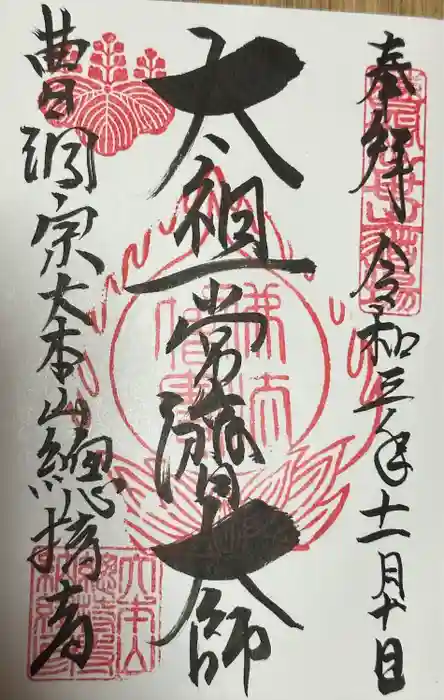 奉拝 令和三年十一月十日
太祖常濟大師
曹洞宗大本山總持寺
佛法
僧寶